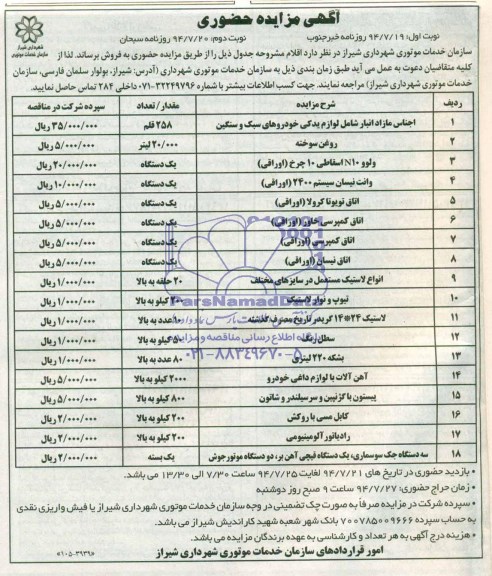 آگهی مزایده حضوری
شهرداری شیراز
سازمان خدمات موتوری
نوبت اول: ۹۴/۷/۱۹ روزنامه خبرجنوب نوبت دوم: ۹۴/۷/۲۰ روزنامه سبحان
سازمان خدمات موتوری شهرداری شیراز در نظر دارد اقلام مشروحه جدول ذیل را از طریق مزایده حضوری به فروش برساند. لذا از
کلیه متقاضیان دعوت به عمل می آید طبق زمان بندی ذیل به سازمان خدمات موتوری شهرداری (آدرس: شیراز، بولوار سلمان فارسی، سازمان
خدمات موتوری شهرداری شیراز) مراجعه نمایند. جهت کسب اطلاعات بیشتر با شماره ۳۲۲۴۹۷۹۶-۰۷۱ داخلی ۲۸۴ تماس حاصل نمایید.
ردیف شرح مزایده مقدار / تعداد سپرده شرکت در مناقصه
۱ اجناس مازاد انبار شامل لوازم یدکی خودروهای سبک و سنگین ۲۵۸ قلم ۳۵/۰۰۰/۰۰۰ ریال
۲ روغن سوخته ۲۰/۰۰۰ لیتر ۵/۰۰۰/۰۰۰ ریال
۳ ولوو N10 اسقاطی ۱۰ چرخ (اوراقی) یک دستگاه ۲۰/۰۰۰/۰۰۰ ریال
۴ وانت نیسان سیستم ۲۴۰۰ (اوراقی) یک دستگاه ۱۰/۰۰۰/۰۰۰ ریال
۵ اتاق تویوتا کرولا (اوراقی) یک دستگاه ۵/۰۰۰/۰۰۰ ریال
۶ اتاق کمپرسی خاور (اوراقی) یک دستگاه ۵/۰۰۰/۰۰۰ ریال
۷ اتاق کمپرسی (اوراقی) یک دستگاه ۵/۰۰۰/۰۰۰ ریال
۸ اتاق نیسان (اوراقی) یک دستگاه ۵/۰۰۰/۰۰۰ ریال
۹ انواع لاستیک مستعمل در سایزهای مختلف ۲۰ حلقه به بالا ۱/۰۰۰/۰۰۰ ریال
۱۰ تیوپ و نوار لاستیک کیلو به بالا ۱/۰۰۰/۰۰۰ ریال
۱۱ لاستیک ۲۴*۱۴ گریدر تاریخ مصرف گذشته عدد به بالا ۱/۰۰۰/۰۰۰ ریال
۱۲ سطل رنگ کیلو به بالا ۱/۰۰۰/۰۰۰ ریال
۱۳ بشکه ۲۲۰ لیتری ۸۰ عدد به بالا ۱/۰۰۰/۰۰۰ ریال
۱۴ آهن آلات با لوازم داغی خودرو ۲۰۰۰ کیلو به بالا ۵/۰۰۰/۰۰۰ ریال
۱۵ پیستون با گژنپین و سرسیلندر و شاتون ۸۰۰ کیلو به بالا ۵/۰۰۰/۰۰۰ ریال
۱۶ کابل مسی با روکش ۲۰۰ کیلو به بالا ۲/۰۰۰/۰۰۰ ریال
۱۷ رادیاتور آلومینیومی ۲۰۰ کیلو به بالا ۲/۰۰۰/۰۰۰ ریال
۱۸ سه دستگاه جک سوسماری، یک دستگاه قیچی آهن بر، دو دستگاه موتورجوش یک بسته ۲/۰۰۰/۰۰۰ ریال
ParsNamadData
پایگاه اطلاع رسانی مناقصه و مزایده
۰۲۱-۸۸۳۴۹۶۷۰-۵
• بازدید حضوری در تاریخ های ۹۴/۷/۲۱ لغایت ۹۴/۷/۲۵ ساعت ۷/۳۰ الی ۱۳/۳۰ می باشد.
• زمان حراج حضوری: ۹۴/۷/۲۷ ساعت ۹ صبح روز دوشنبه
• سپرده شرکت در مزایده صرفاً به صورت چک تضمینی در وجه سازمان خدمات موتوری شهرداری شیراز یا فیش واریزی نقدی
به حساب سپرده ۷۰۰۷۸۵۰۰۹۶۶۶ بانک شهر شعبه شهید کاراندیش شیراز می باشد.
• هزینه درج آگهی به هر تعداد و کارشناسی به عهده برندگان مزایده می باشد.
امور قراردادهای سازمان خدمات موتوری شهرداری شیراز
«۱۰۵-۳۹۳۹»